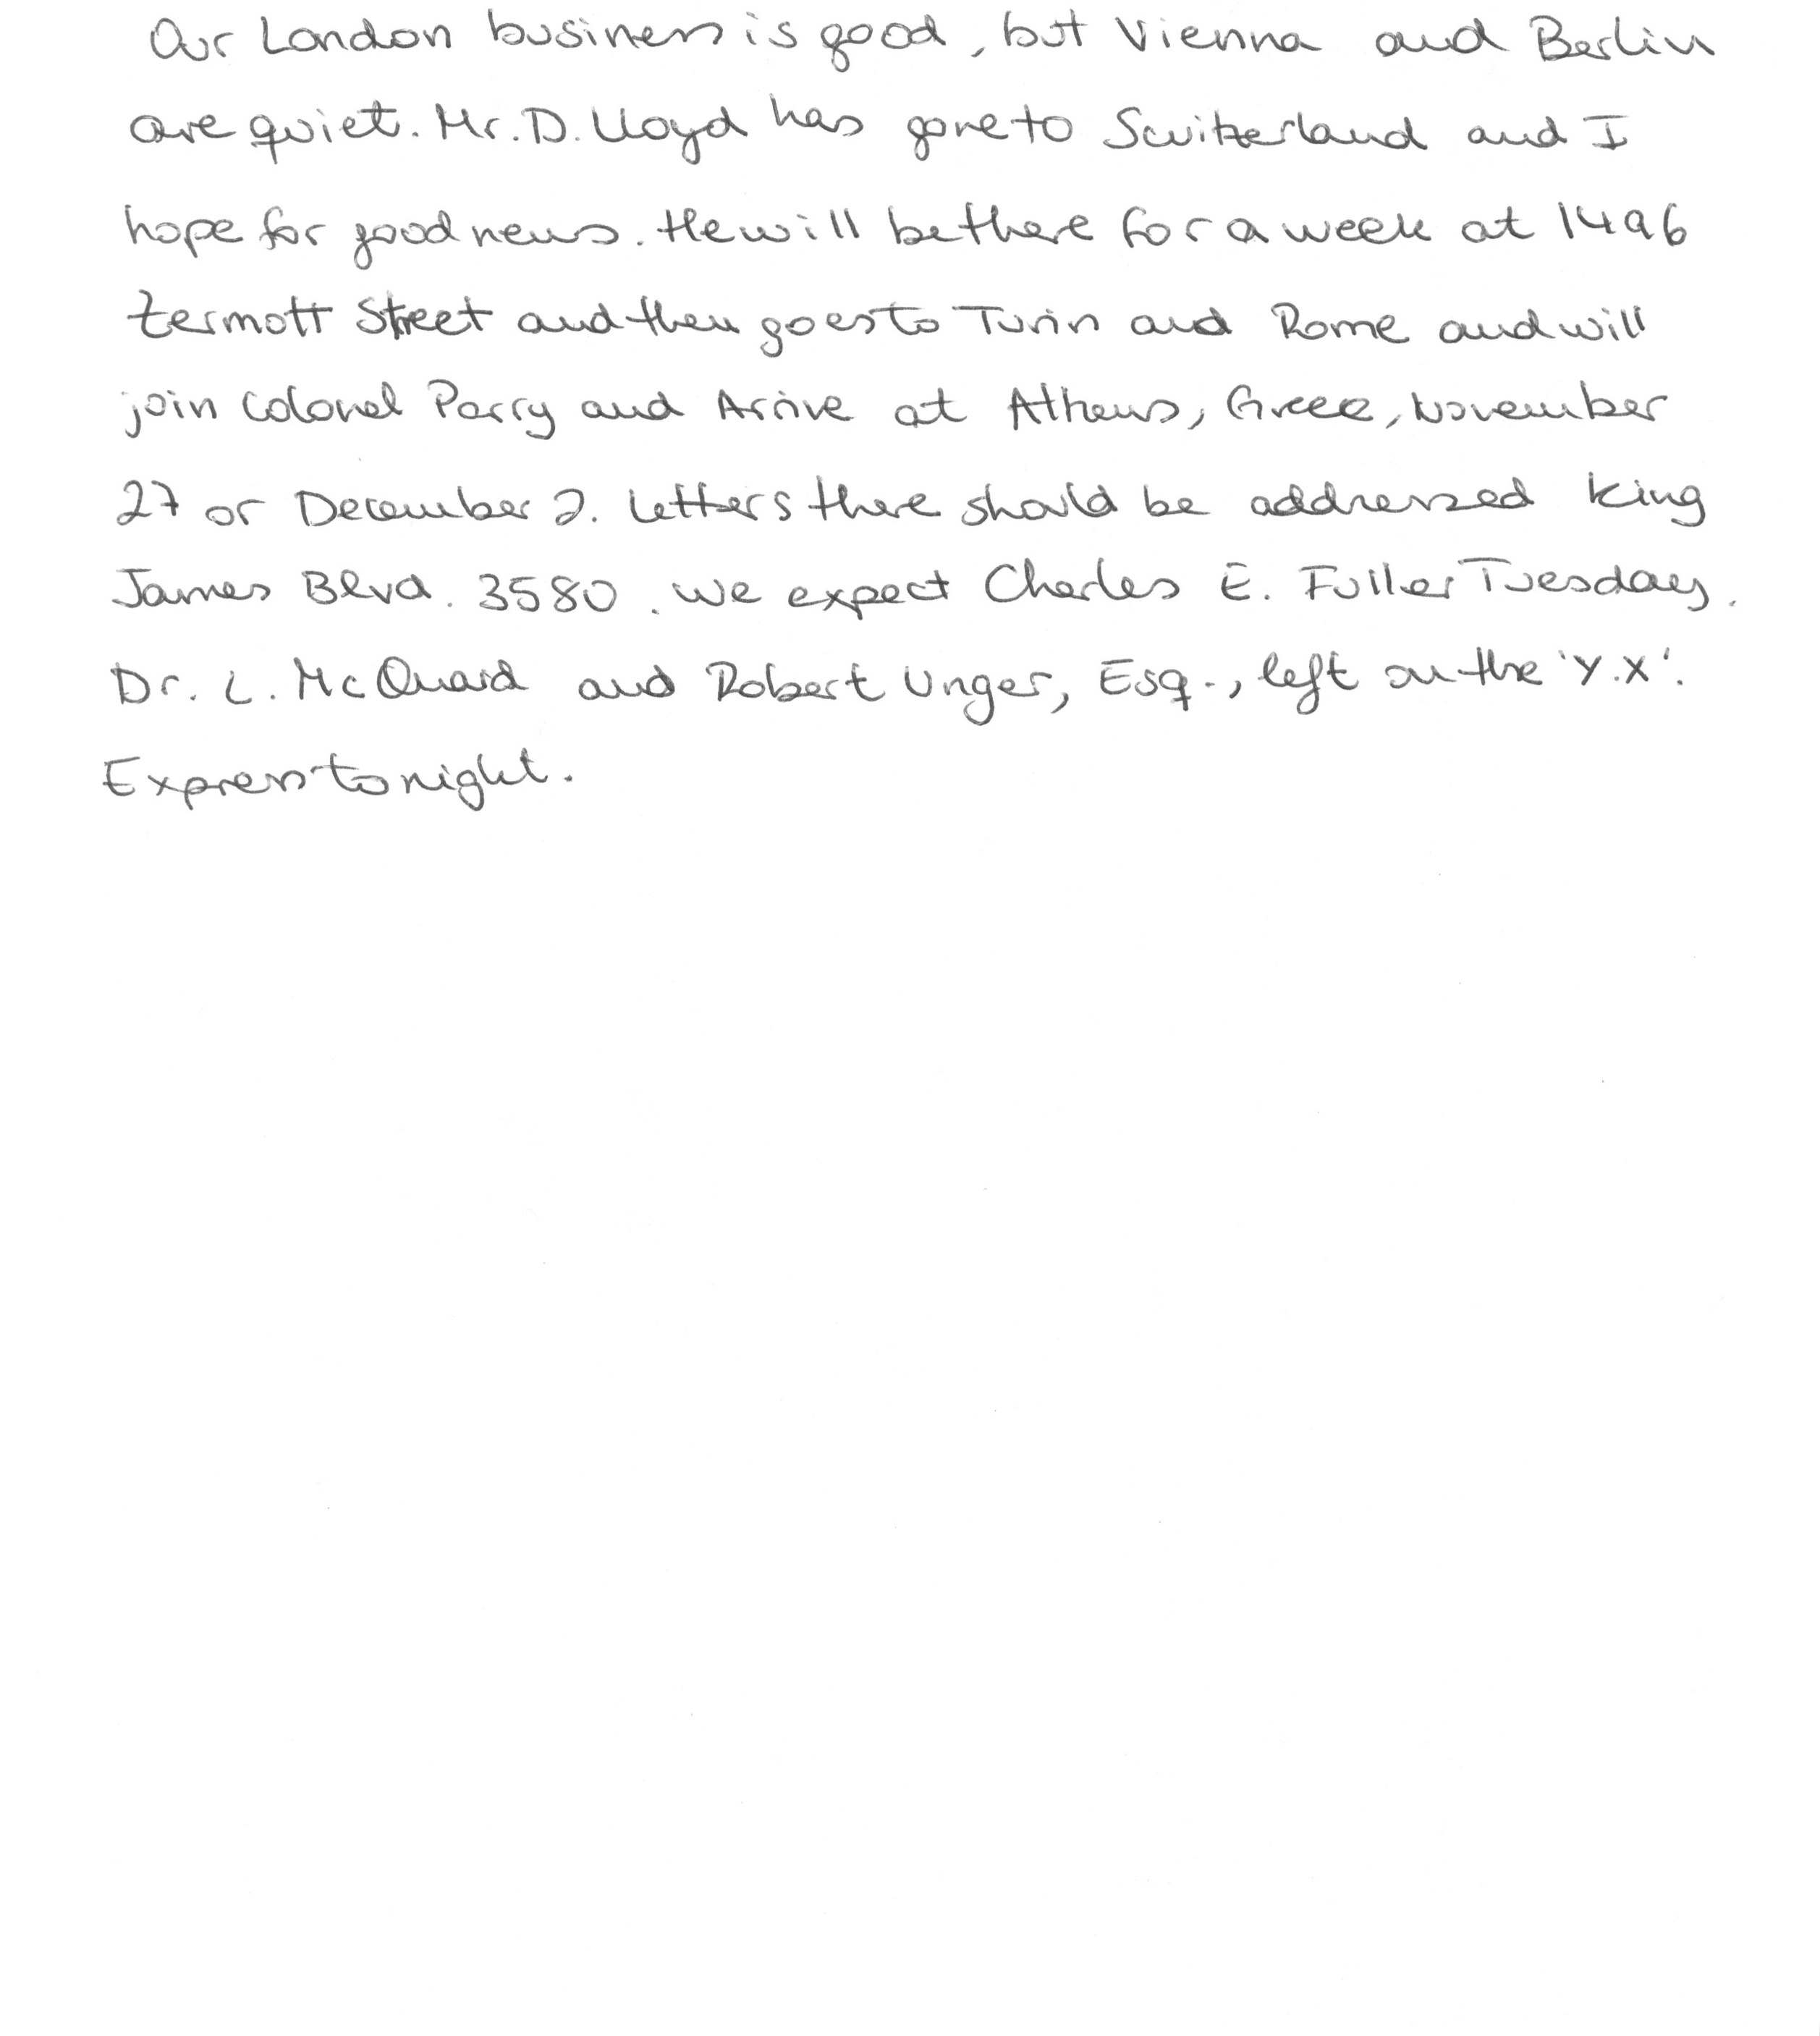 Our London business is good, but Vienna and Berlin
are quiet. Mr. D. Lloyd has gone to Switzerland and I
hope for good news. He will be there for a week at 1496
Zermott Street and then goes to Turin and Rome and will
join Colonel Parry and Arrive at Athens, Greece, November
27 or December 2. Letters there should be addressed King
James Blvd. 3580. We expect Charles E. Fuller Tuesday.
Dr. L. McQuaid and Robert Unger, Esq., left on the 'Y.X'.
Express tonight.